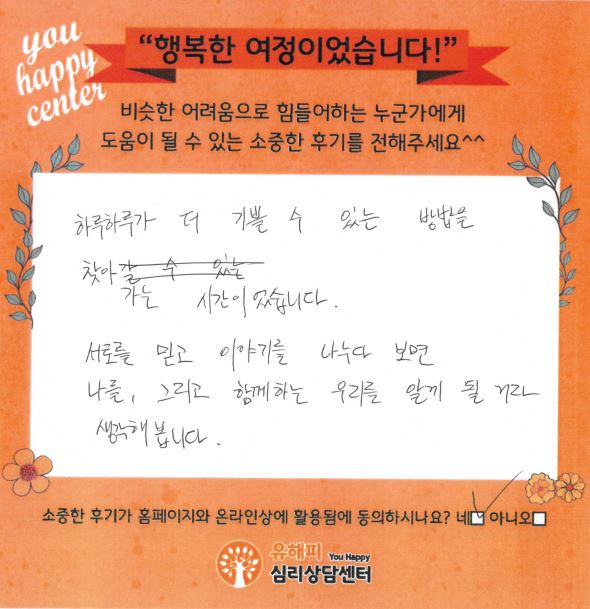 you
happy
center
“행복한 여정이었습니다!”
비슷한 어려움으로 힘들어하는 누군가에게
도움이 될 수 있는 소중한 후기를 전해주세요^^
하루하루가 더 기쁠 수 있는 방법을
찾아갈 수 있는
가는 시간이었습니다.
서로를 믿고 이야기를 나누다 보면
나를, 그리고 함께하는 우리를 알게 될 거라
생각해 봅니다.
소중한 후기가 홈페이지와 온라인상에 활용됨에 동의하시나요? 네☑ 아니오☐
유해피 You Happy
심리상담센터